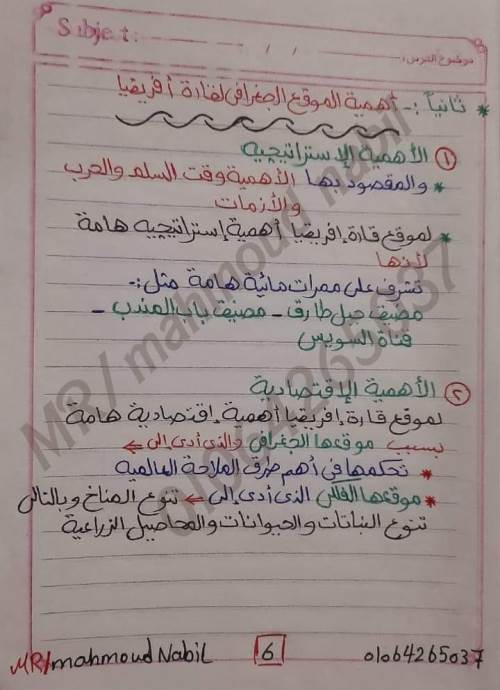 Subject:
/ /
موضوع الدرس:
* ثانياً :- أهمية الموقع الجغرافى لقارة أفريقيا
① الأهمية الإستراتيجيه
* والمقصود بها الأهمية وقت السلم والحرب
والأزمات
* لموقع قارة إفريقيا أهمية إستراتيجيه هامة
لأنها
تشرف على ممرات مائية هامة مثل :-
مضيق جبل طارق - مضيق باب المندب -
قناة السويس
② الأهمية الإقتصادية
لموقع قارة إفريقيا أهمية إقتصادية هامة
بسبب موقعها الجغرافى والذى أدى إلى ←
* تحكمها فى أهم طرق الملاحة العالمية
* موقعها الفلكى الذى أدى إلى ← تنوع المناخ وبالتالى
تنوع النباتات والحيوانات والمحاصيل الزراعية
MR/mahmoud nabil
01064265037
MR/mahmoud Nabil 6 01064265037